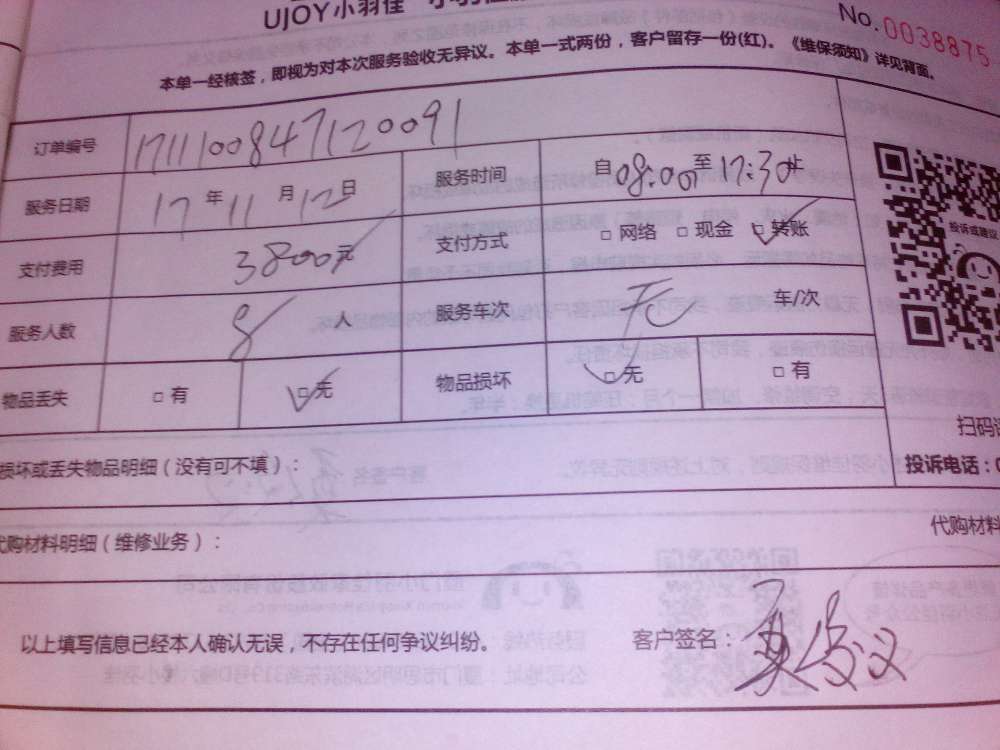 UJOY小羽佳
No.0038875
本单一经核签，即视为对本次服务验收无异议。本单一式两份，客户留存一份(红)。《维保须知》详见背面。
订单编号 171110084712 0091
服务日期 17年11月12日 服务时间 自08:00至17:30止
支付费用 3800元 支付方式 □网络 □现金 □转账
服务人数 8人 服务车次 无 车/次
物品丢失 □有 □无 物品损坏 □无 □有
投诉或建议
扫码
损坏或丢失物品明细（没有可不填）： 投诉电话：0
代购材料明细（维修业务）： 代购材料
以上填写信息已经本人确认无误，不存在任何争议纠纷。 客户签名：